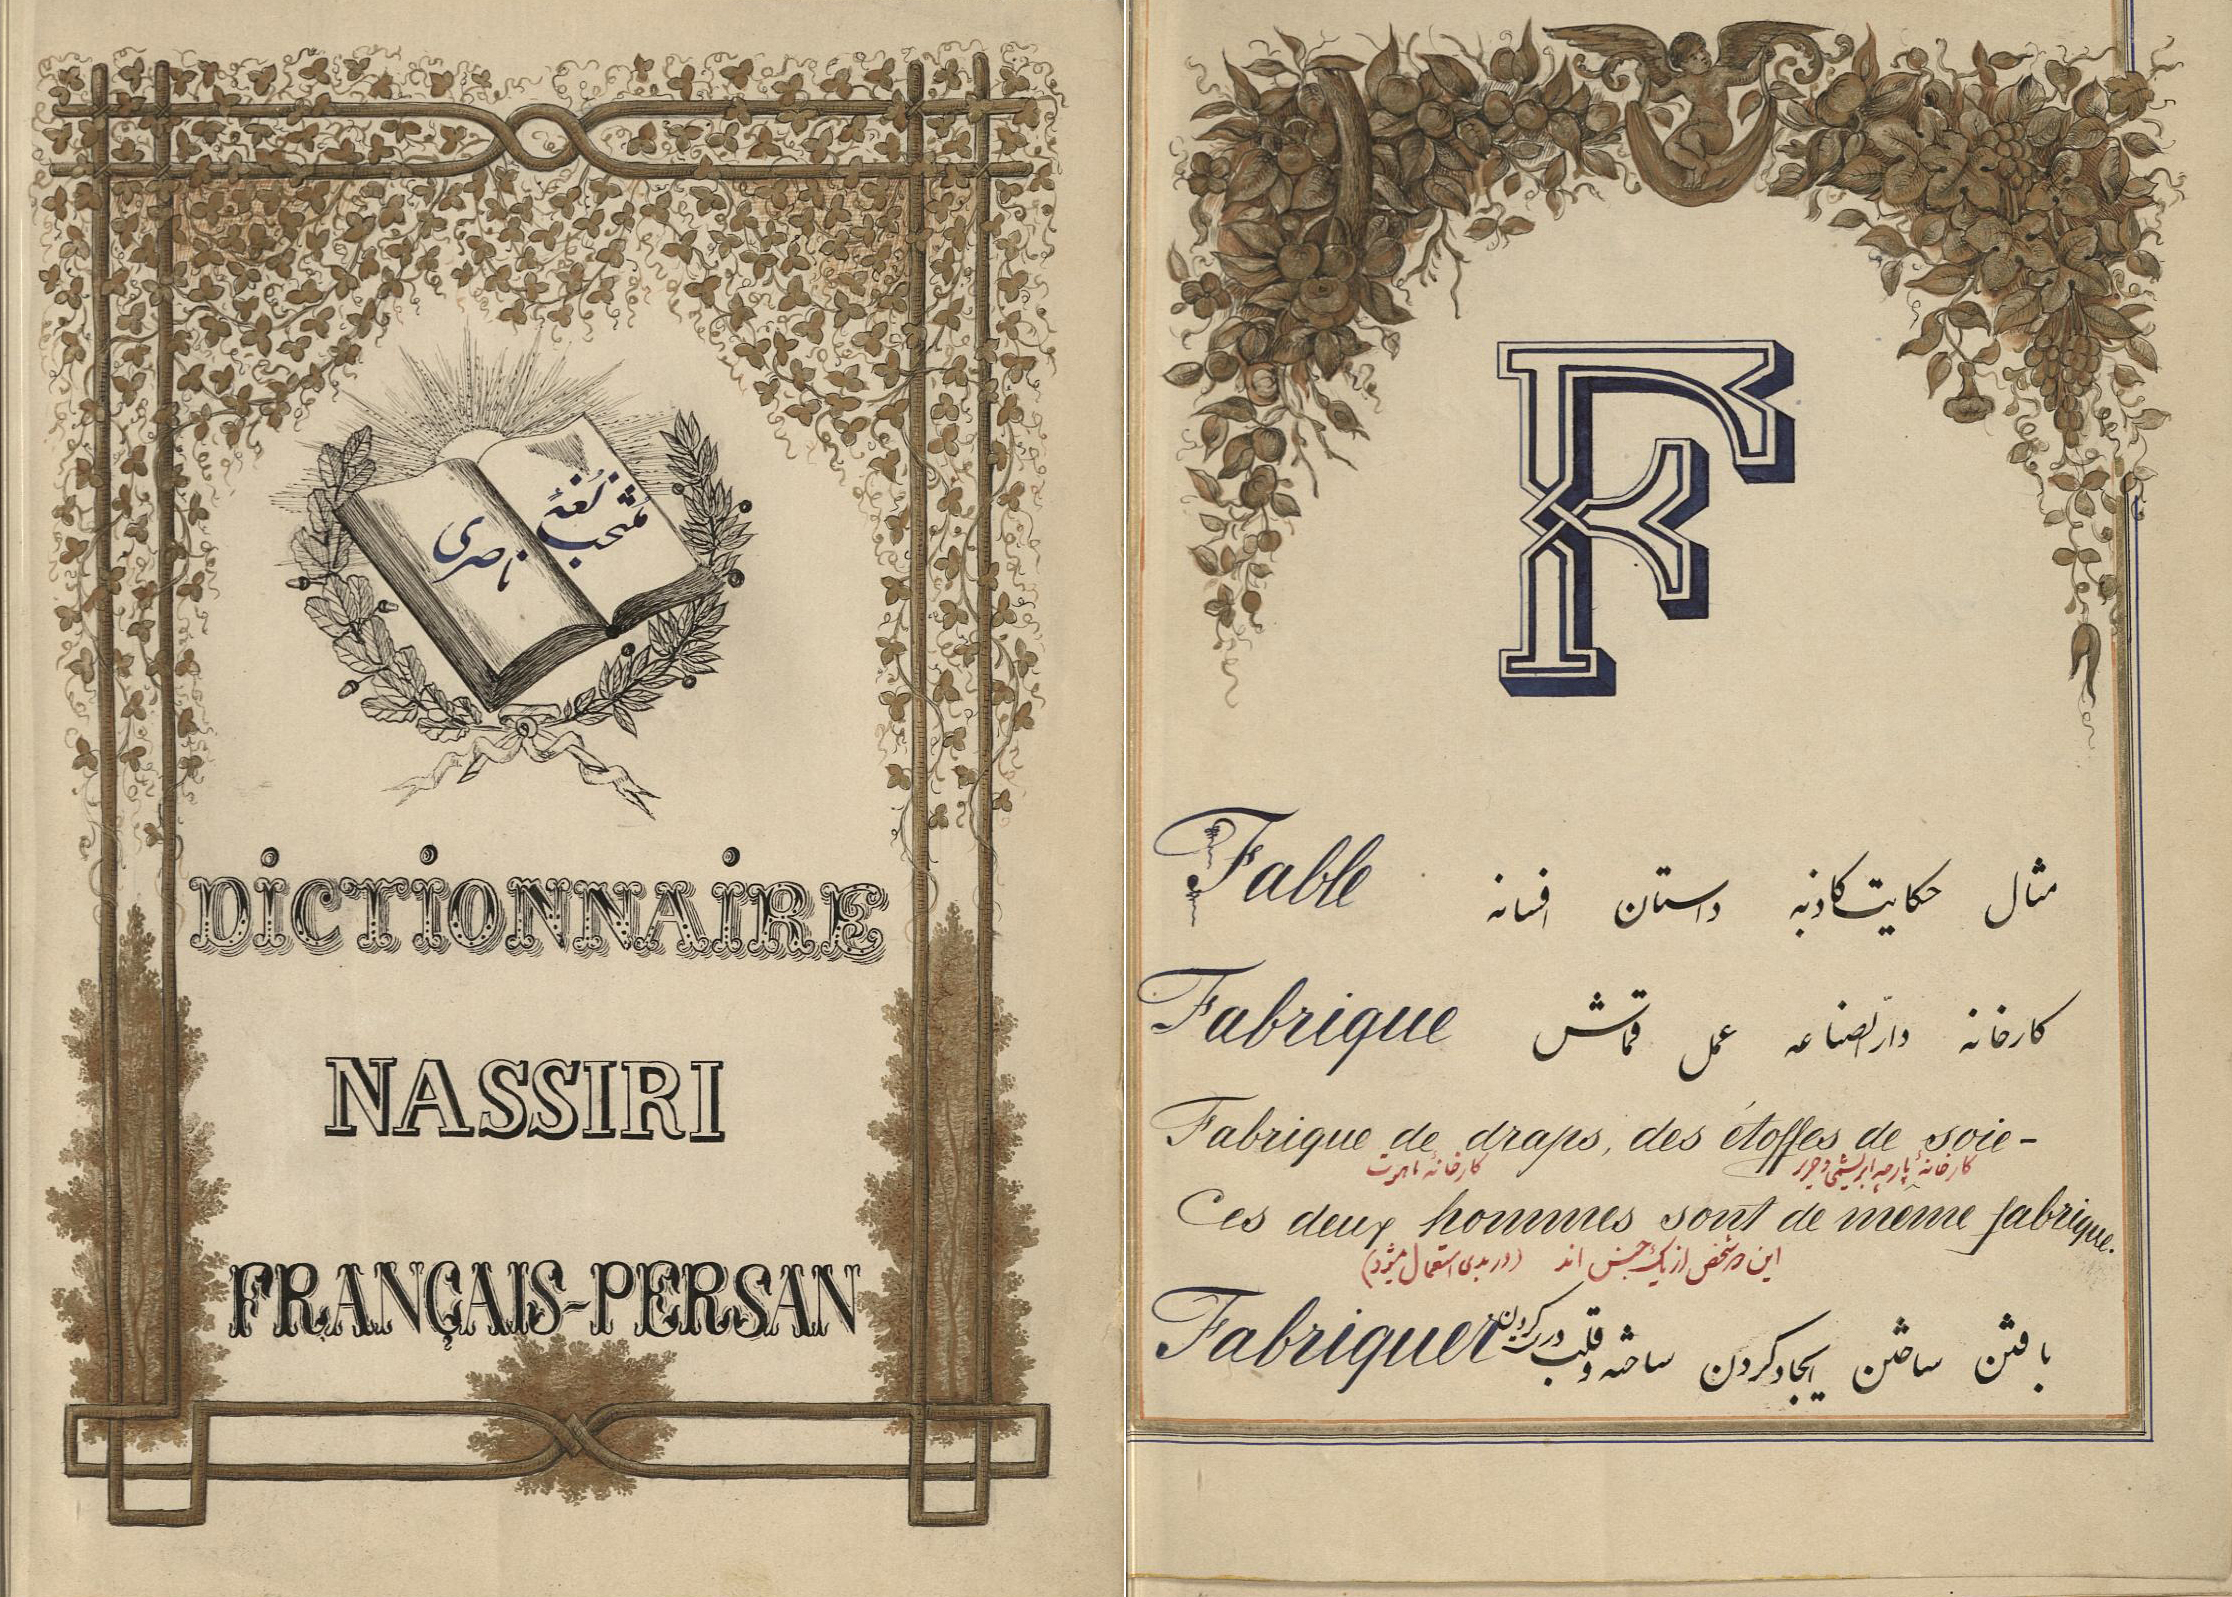 منتخب لغة
ناصری
DICTIONNAIRE
NASSIRI
FRANÇAIS-PERSAN
F
Fable مثال حکایت کاذبه داستان افسانه
Fabrique کارخانه دارّالصناعه عمل قماش
Fabrique de draps, des étoffes de soie-
کارخانهٔ ماهوت کارخانهٔ پارچه ابریشمی و حریر
Ces deux hommes sont de meme fabrique.
این دو شخص از یک جنس اند (در بدی استعمال میشود)
Fabriquer بافتن ساختن ایجاد کردن ساخته و قلب درست کردن